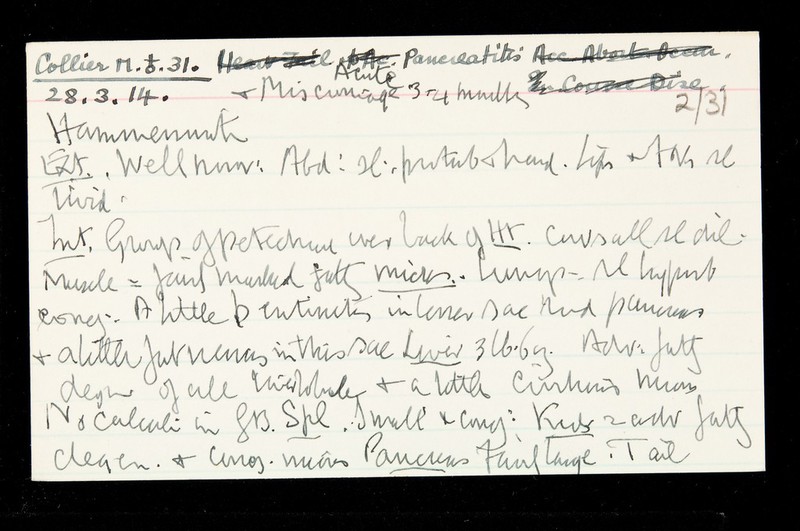 Collier M. 31. Heart Fail Pancreatitis Acc Abort.
Acute
28.3.14. + Miscarriage 3-4 months In Course Dise
2/31
Hammersmith
Ext. Well nour: Abd: sl. protub & hard. Lips + sl
livid.
Int. Groups of petechiae over back of Ht. Cavs all sl dil.
Muscle = fairly marked fatty micros. Lungs = sl hypost
cong:. A little in lesser sac behind pancreas
+ a little fat necros in this sac Liver 3 lb. 6 oz. Adv. fatty
degen of + a little cirrhosis micros
No calculi in GB. Spl. Small & cong: Kids = adv fatty
degen. + cong. micros Pancreas fairly large. Tail